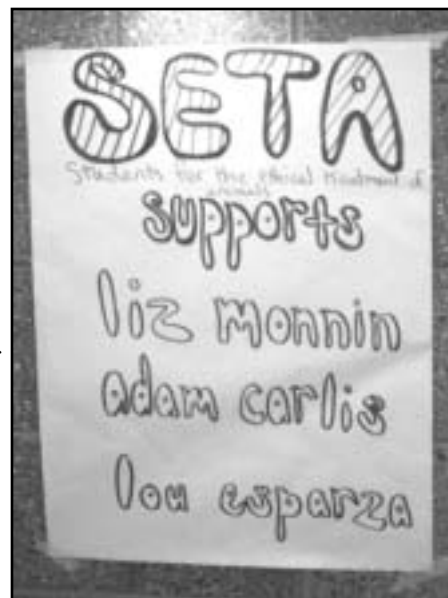 SETA
Students for the ethical treatment of
animals
supports
liz monnin
adam carlis
lou esparza